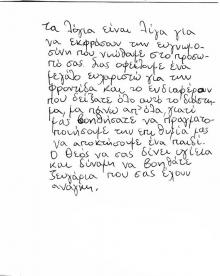 τα λόγια είναι λίγα για
να εκφράσουν την ευγνωμο-
σύνη που νιώθουμε στο πρόσω-
πό σας. Σας οφείλουμε ένα
μεγάλο ευχαριστώ για την
φροντίδα και το ενδιαφέρον
που δείξατε όλο αυτό το διάστη-
μα, μα πάνω απ' όλα, γιατί
μας βοηθήσατε να πραγματο-
ποιήσουμε την επιθυμία μας
να αποκτήσουμε ένα παιδί.
Ο Θεός να σας δίνει υγεία
και δύναμη να βοηθάτε
ζευγάρια που σας έχουν
ανάγκη.